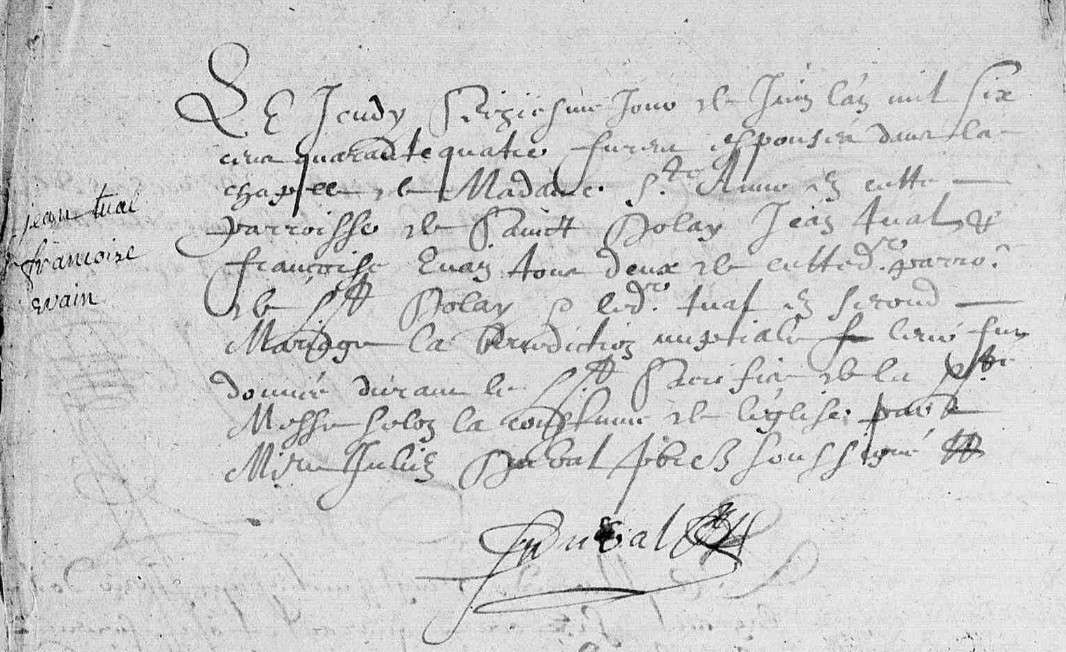 jean tual
francoise
evain
Le Jeudy Seiziesme Jour de Juin l'an mil six
cens quarante quatre furent espousés dans la
chapelle de Madame Ste Anne en cette
parroisse de Sainct Dolay Jean tual &
francoise Evain tous deux de cetted. parro.
de St Dolay & led. tual en second
Mariage la benediction nuptiale leur fut
donnée durant le St Sacrifice de la Ste
Messe selon la coustume de l'église par
Mire Julien Duval pbre soussigné
J Duval